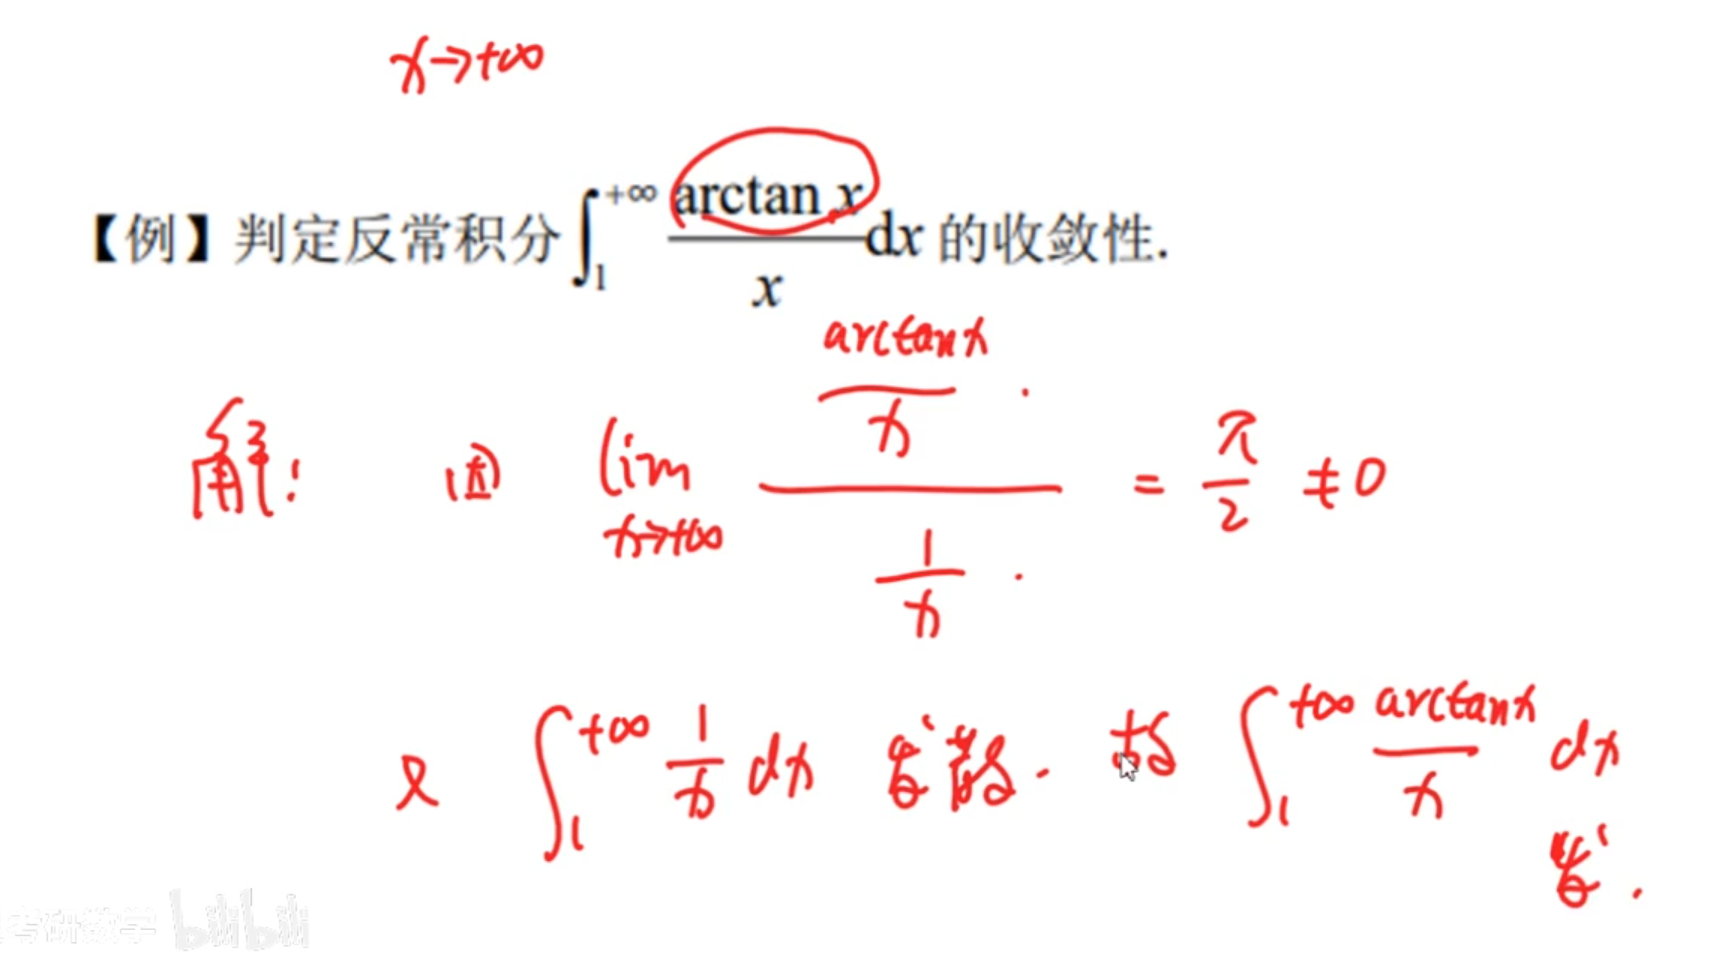 x→+∞
【例】判定反常积分∫₁^{+∞} (arctan x)/x dx 的收敛性.
解: 因 lim_{x→+∞} ((arctan x)/x)/(1/x) = π/2 ≠ 0
又 ∫₁^{+∞} 1/x dx 发散. 故 ∫₁^{+∞} (arctan x)/x dx
发.
考研数学 bilibili